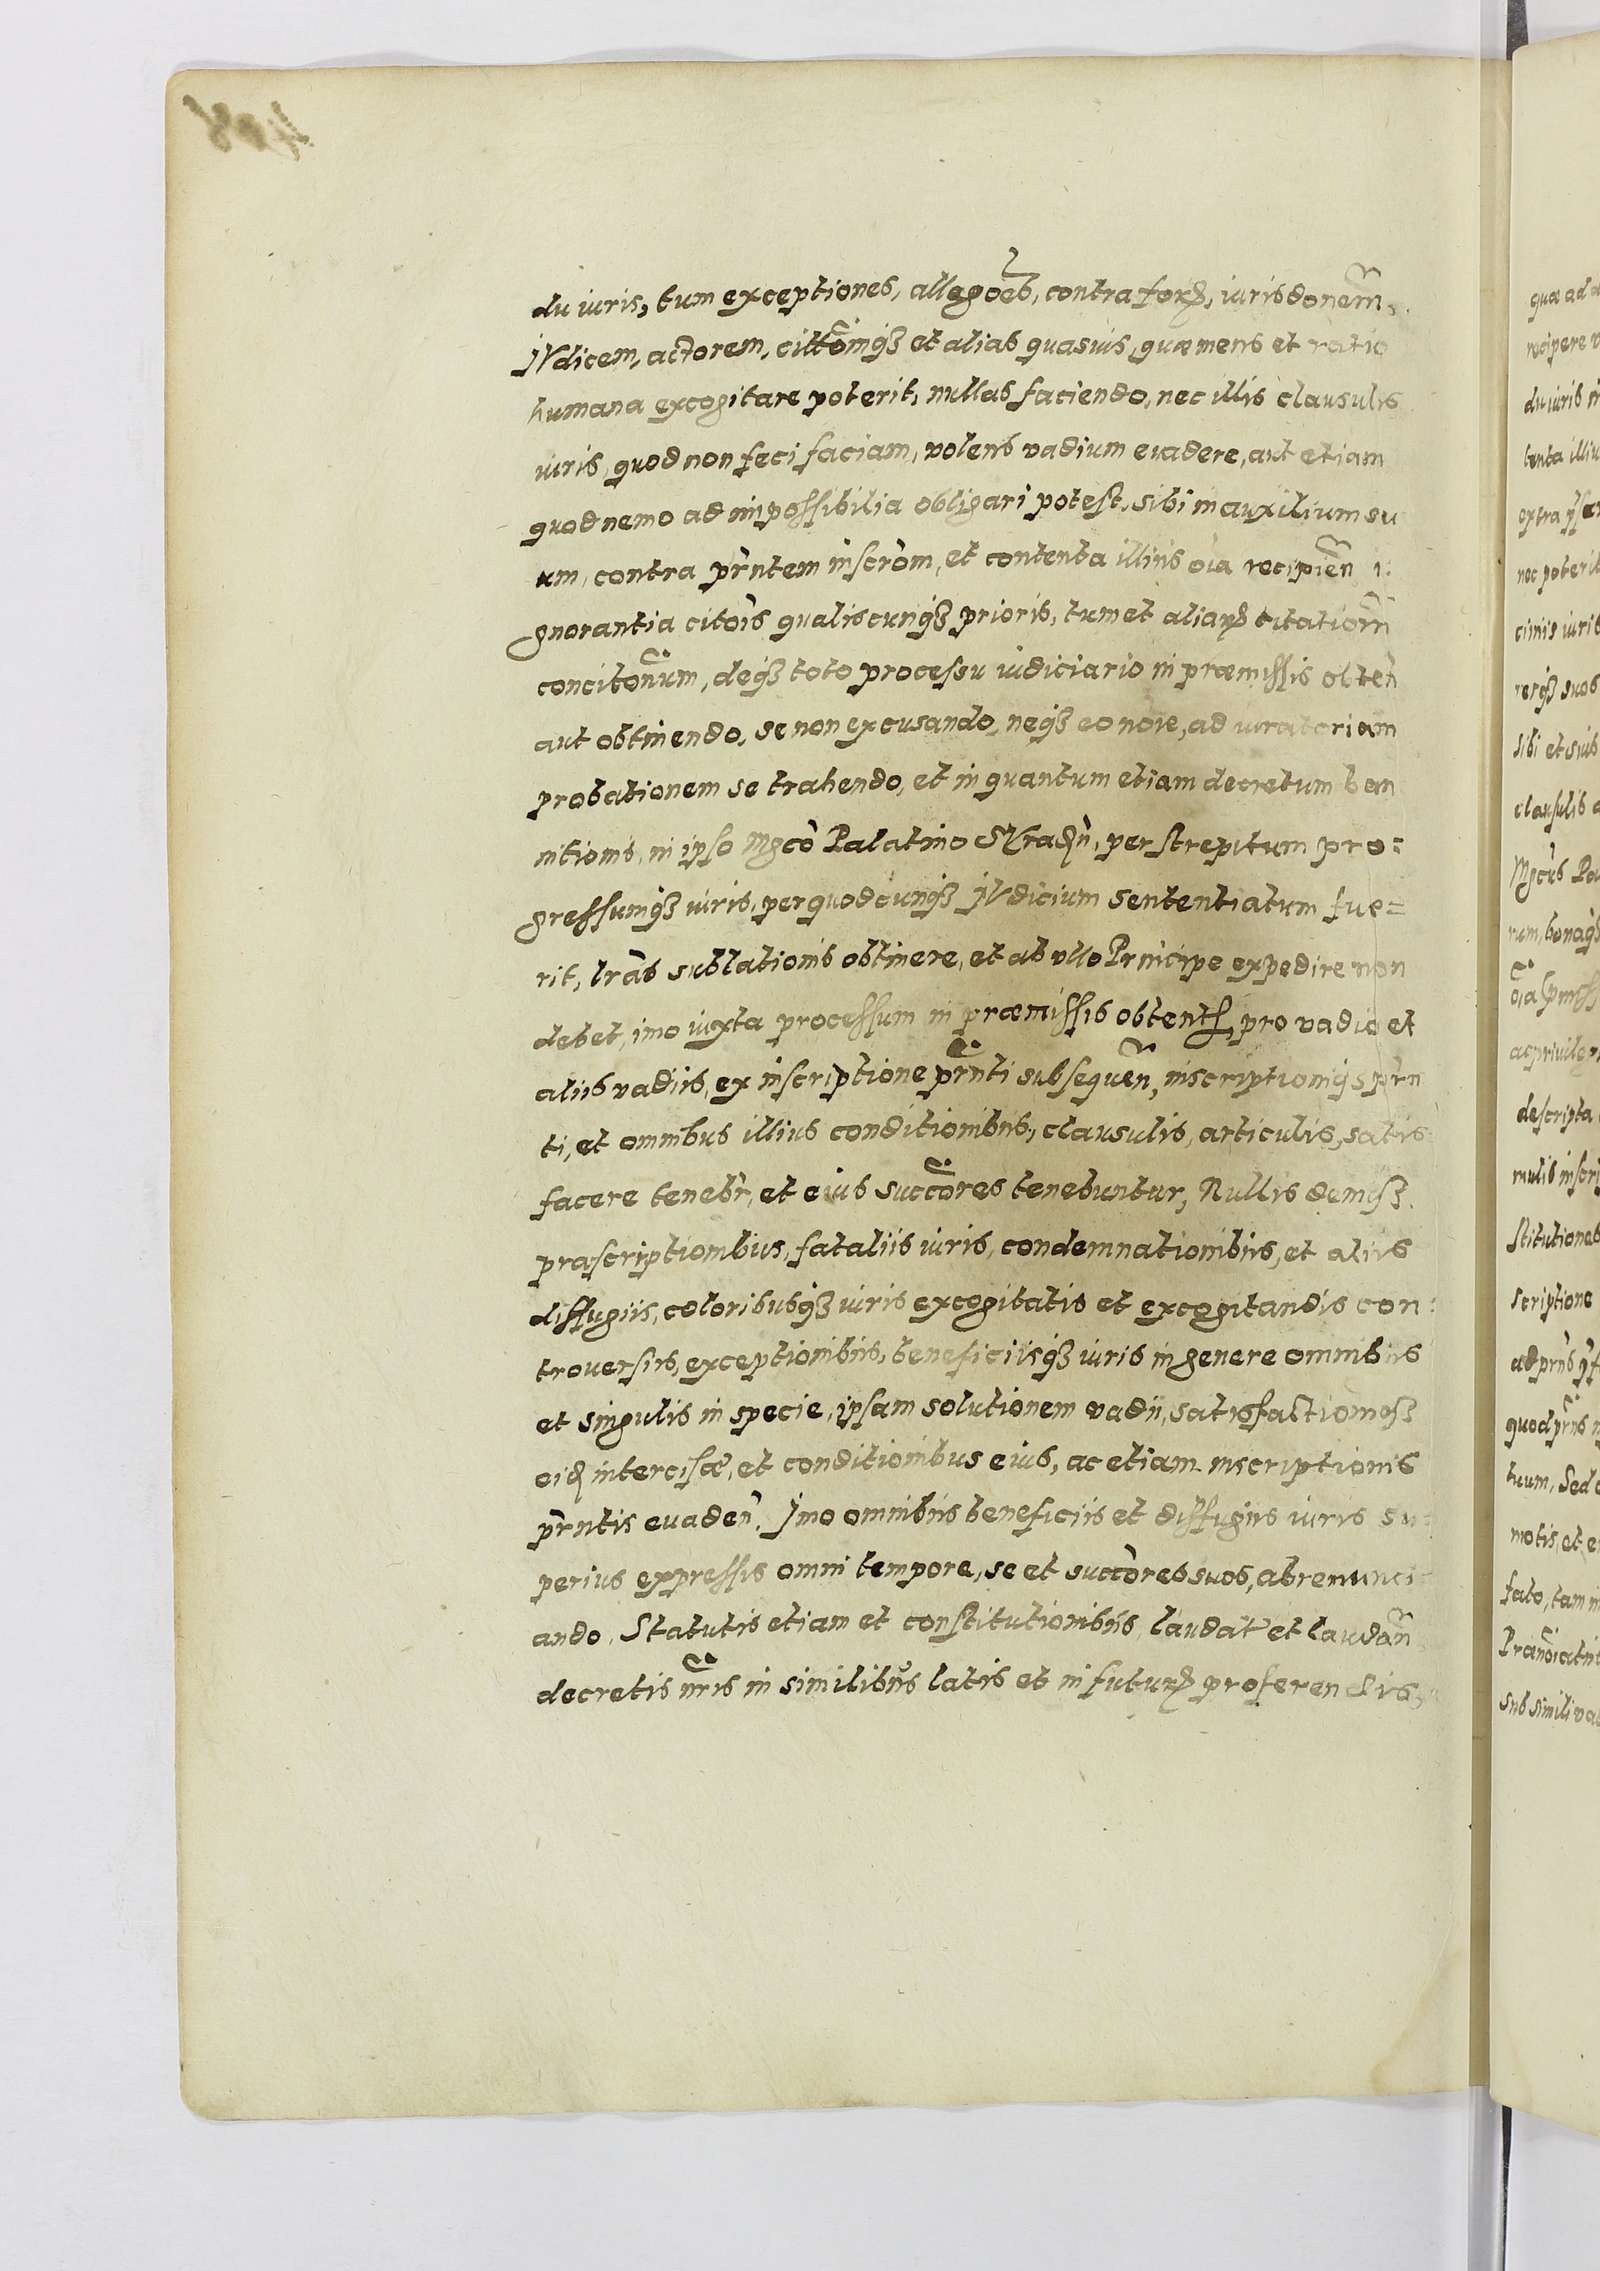 du iuris, tum exceptiones, allegoẽs, contra forꝝ, iurisdonem̃,
IVdicem, actorem, cittõmqꝫ et alias quasuis, quæ mens et ratio
humana excogitare poterit, nullas faciendo, nec illis clausulis
iuris, quod non feci faciam, volens vadium euadere, aut etiam
quod nemo ad impossibilia obligari potest, sibi in auxilium su
um, contra prn̄tem inscrõm, et contenta illius oĩa recipien̄ i:
gnorantia citõis qualiscunqꝫ prioris, tum et aliarꝝ citatiom̃
concitonũm, deqꝫ toto processu iudiciario in præmissis obten̄
aut obtinendo, se non excusando, neqꝫ eo noĩe, ad iuratoriam
probationem se trahendo, et in quantum etiam decretum ban
nitionis, in ipso Mgcõ Palatino Siradñ, per strepitum pro=
gressumqꝫ iuris, per quodcunqꝫ IVdicium sententiatum fue=
rit, lrãs sublationis obtinere, et ab vllo Principe expedire non
debet, imo iuxta processum in præmissis obtent, pro vadio et
aliis vadiis, ex inscriptione prñti subsequen̄, inscriptioniqꝫ prñ
ti, et omnibus illius conditionibus, clausulis, articulis, satis
facere tenebr̃, et eius succõres tenebuntur, Nullis demqꝫ
præscriptionibus, fataliis iuris, condemnationibus, et aliis
diffugiis, coloribusqꝫ iuris excogitatis et excogitandis con:
trouersiis, exceptionibus, beneficiisqꝫ iuris in genere omnibus
et singulis in specie, ipsam solutionem vadii, satisfactionẽqꝫ
eiꝺ intercisæ, et conditionibus eius, ac etiam inscriptionis
prñtis euaden̄. Imo omnibus beneficiis et diffugiis iuris su:
perius expressis omni tempore, se et succõres suos, abrenunci=
ando. Statutis etiam et constitutionibus, laudat̃ et laudañ
decretis nr̃is in similibus latis et in futurꝝ proferendis,